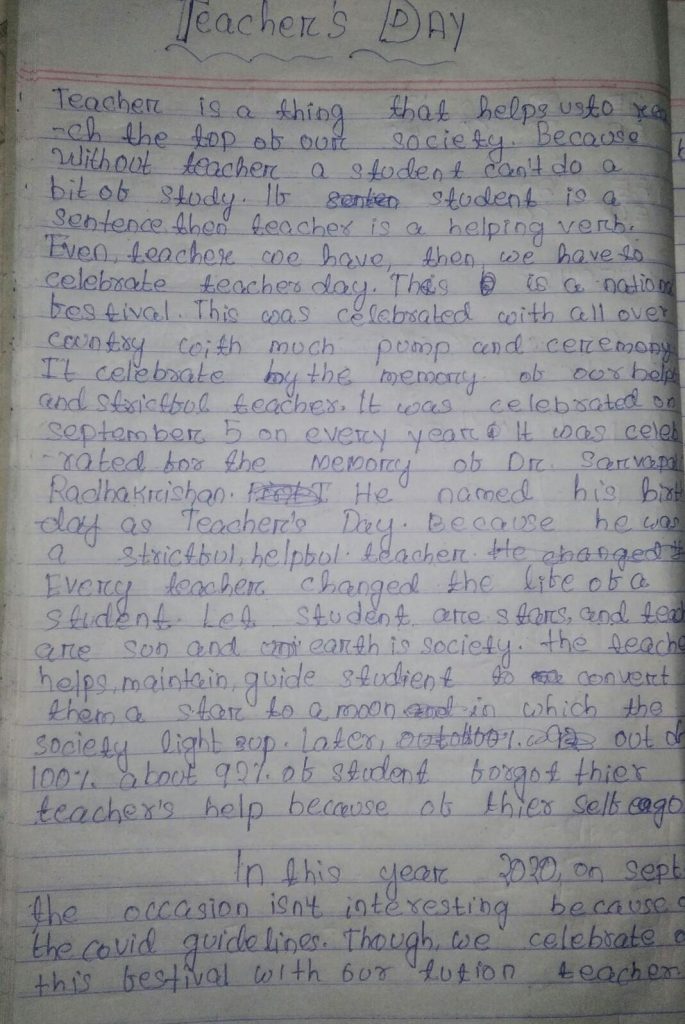 Teacher's DAY
Teacher is a thing that helps us to rea
-ch the top of our society. Because
without teacher a student can't do a
bit of study. If student is a
sentence then teacher is a helping verb.
Even, teacher we have, then, we have to
celebrate teacher day. This is a nationa
festival. This was celebrated with all over
country with much pomp and ceremony
It celebrate by the memory of our help
and strictful teacher. It was celebrated on
september 5 on every year. It was celeb
-rated for the memory of Dr. Sarvapal
Radhakrishan. He named his birt
day as Teacher's Day. Because he was
a strictful, helpful teacher. He changed
Every teacher changed the life of a
student. Let student are stars, and teac
are sun and earth is society. the teache
helps, maintain, guide studient to convert
them a star to a moon in which the
society light sup. Later, out of
100% about 92% of student forgot thier
teacher's help because of thier self eago
In this year 2020, on sept
the occasion isn't interesting because
the covid guidelines. Though, we celebrate
this festival with our tution teacher